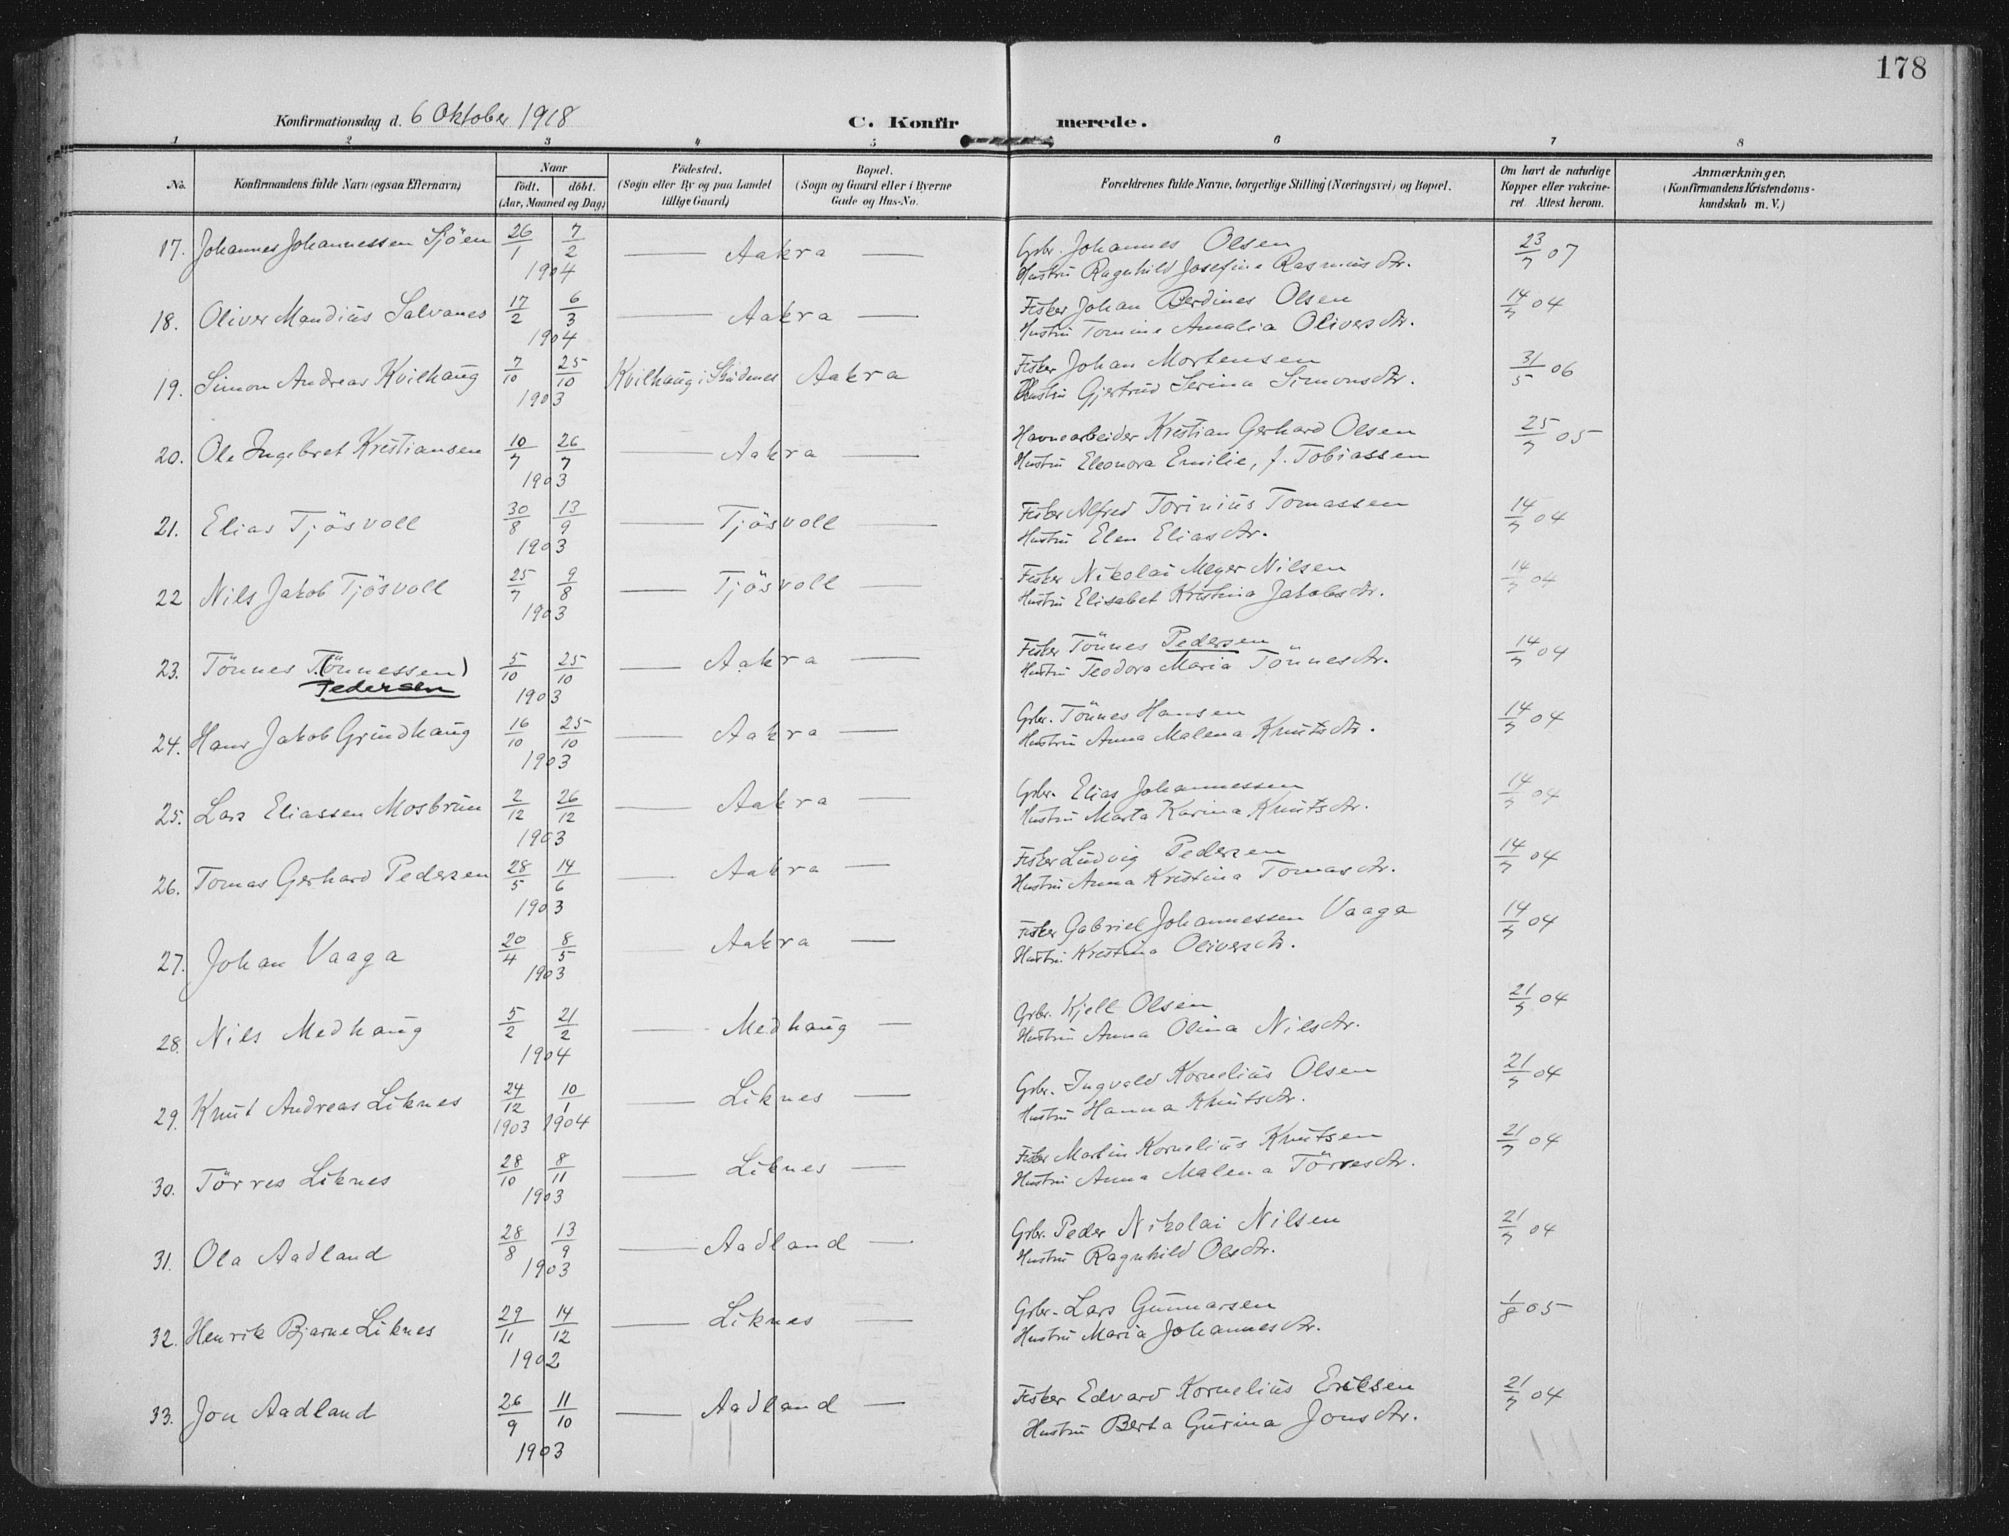 178
Konfirmationsdag d. 6 Oktober 1918
C. Konfirmerede.
1 2 3 4 5 6 7 8
No. Konfirmandens fulde Navn (ogsaa Efternavn) Naar født. døbt. (Aar, Maaned og Dag) Fødested. (Sogn eller By og paa Landet tillige Gaard) Bopæl. (Sogn og Gaard eller i Byerne Gade og Hus-No. Forældrenes fulde Navne, borgerlige Stilling (Næringsvei) og Bopæl. Om havt de naturlige Kopper eller vakcineret. Attest herom. Anmærkninger. (Konfirmandens Kristendomskundskab m. V.)
17. Johannes Johannessen Sjöen 26/1 7/2 1904 — Aakra — Gbr. Johannes Olsen 23/7 07
Hustru Ragnhild Josefine Rasmusdtr.
18. Oliver Mandius Salvanes 17/2 6/3 1904 — Aakra — Fisker Johan Berdines Olsen 14/7 04
Hustru Tomine Amalia Oliversdtr.
19. Simon Andreas Kvilhaug 7/10 25/10 1903 Kvilhaug i Skudenes Aakra Fisker Johan Mortensen 31/5 06
Hustru Gjertrud Serina Simonsdtr.
20. Ole Ingebret Kristiansen 10/7 26/7 1903 — Aakra — Havnearbeider Kristian Gerhard Olsen 25/7 05
Hustru Eleonora Emilie, f. Tobiassen
21. Elias Tjösvoll 30/8 13/9 1903 — Tjösvoll — Fisker Alfred Torinius Tomassen 14/7 04
Hustru Elen Eliasdtr.
22 Nils Jakob Tjösvoll 25/7 9/8 1903 — Tjösvoll — Fisker Nikolai Meyer Nilsen 14/7 04
Hustru Elisabet Kristina Jakobsdtr.
23. Tönnes (Tönnessen) 5/10 25/10 1903 — Aakra — Fisker Tönnes Pedersen 14/7 04
Pedersen Hustru Teodora Maria Tönnesdtr.
24. Hans Jakob Grindhaug 16/10 25/10 1903 — Aakra — Gbr. Tönnes Hansen 14/7 04
Hustru Anna Malena Knutsdtr.
25. Lars Eliassen Mosbrun 2/12 26/12 1903 — Aakra — Gbr. Elias Johannessen 14/7 04
Hustru Marta Karina Knutsdtr.
26. Tomas Gerhard Pedersen 28/5 14/6 1903 — Aakra — Fisker Ludvig Pedersen 14/7 04
Hustru Anna Kristina Tomasdtr.
27. Johan Vaaga 20/4 8/5 1903 — Aakra — Fisker Gabriel Johannessen Vaaga 14/7 04
Hustru Kristina Oliversdtr.
28. Nils Medhaug 5/2 21/2 1904 — Medhaug — Gbr. Kjell Olsen 21/7 04
Hustru Anna Olina Nilsdtr.
29. Knut Andreas Liknes 24/12 1903 10/1 1904 — Liknes — Gbr. Ingvald Kornelius Olsen 21/7 04
Hustru Hanna Knutsdtr.
30. Törres Liknes 28/10 8/11 1903 — Liknes — Fisker Martin Kornelius Knutsen 21/7 04
Hustru Anna Malena Törresdtr.
31. Ola Aadland 28/8 13/9 1903 — Aadland — Gbr. Peder Nikolai Nilsen 21/7 04
Hustru Ragnhild Olsdtr.
32. Henrik Bjarne Liknes 29/11 14/12 1902 — Liknes — Gbr. Lars Gunnarsen 1/8 05
Hustru Maria Johannesdtr.
33. Jon Aadland 26/9 11/10 1903 — Aadland — Fisker Edvard Kornelius Eriksen 21/7 04
Hustru Berta Gurina Jonsdtr.